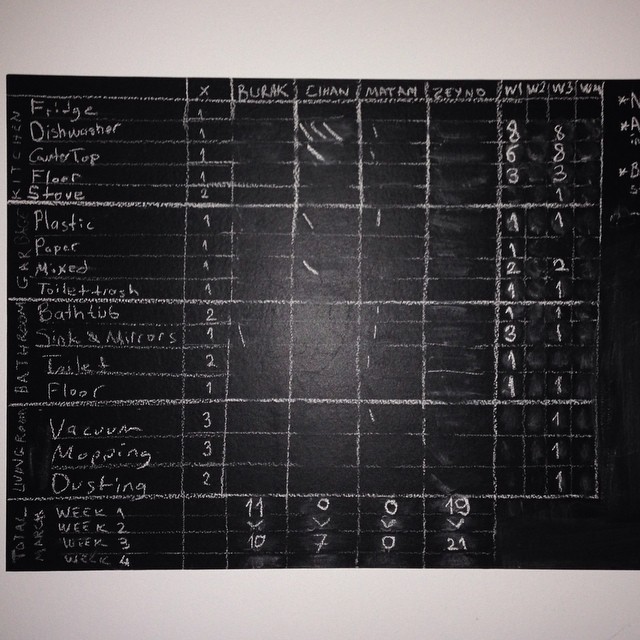 X BURAK CIHAN MATAM ZEYNO W1 W2 W3 W4
KITCHEN
Fridge 1
Dishwasher 1 8 8
CounterTop 1 6 8
Floor 1 3 3
Stove 2 1
Plastic 1 1 1
Paper 1 1
Mixed 1 2 2
Toilet trash 1 1 1
BATHROOM
Bathtub 2 1 1
Sink & Mirrors 1 3 1
Toilet 2 1
Floor 1 1 1
LIVING ROOM
Vacuum 3 1
Mopping 3 1
Dusting 2 1
TOTAL MARCH
WEEK 1 11 0 0 19
WEEK 2
WEEK 3 10 7 0 21
WEEK 4